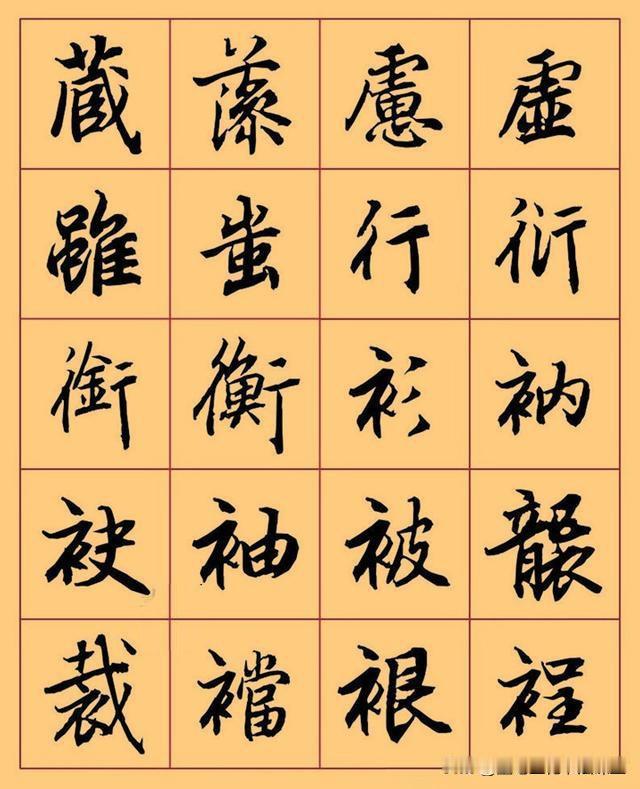 藏 藻 慮 虛
雖 蚩 行 衍
銜 衡 衫 衲
袂 袖 被 襲
裁 襠 裉 裎